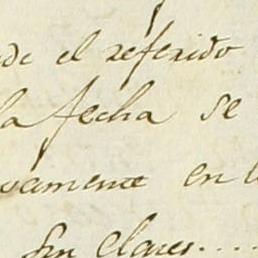 de el referido
la fecha se
vamente en l
Sin Clases....